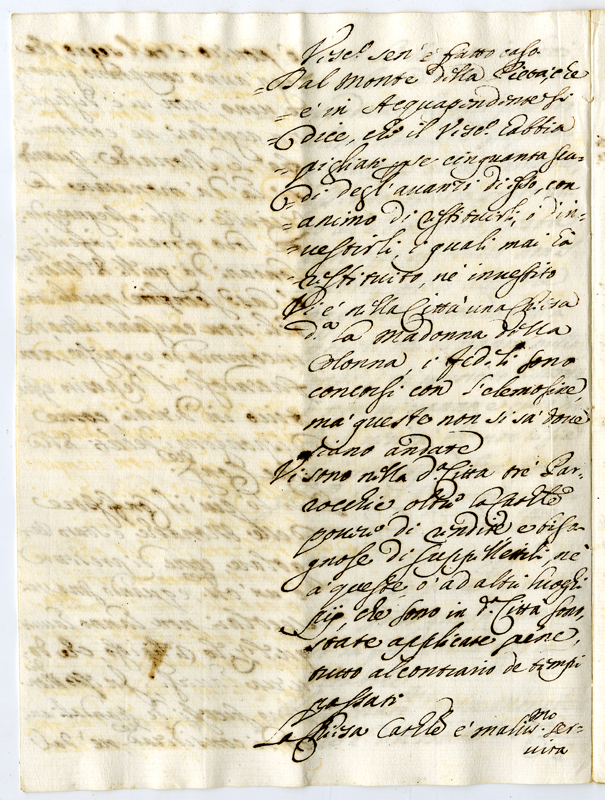 Vesc.º sen' è fatto caso
Dal Monte della Pietà che
è in Acquapendente si
dice, che il Vesc.º habbia
pigliati se cinquanta scu-
di degl'auanzi di esso, con
animo di restituirli, ò d'in-
uestirli, i quali mai hà
restituito, nè inuestito
Vi è nella Città una Chiesa
d.ª la Madonna della
Colonna, i fedeli sono
concorsi con l'elemosine,
mà queste non si sà doue
siano andate
Vi sono nella d.ª Città trè Par-
rocchie oltre la Catt.le
pouere di rendite e biso-
gnose di suppellettili, nè
a queste ò ad altri luoghi
pij che sono in d.ª Città sono
state applicate pene,
tutto al contrario de tempi
passati
La Chiesa Catt.le è maliss.mo ser-
uita